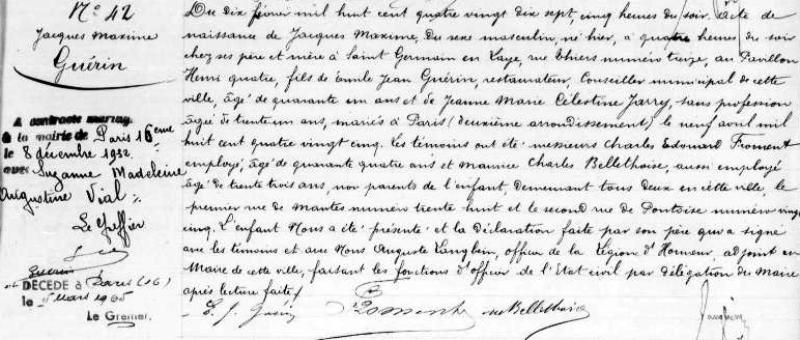 N.o 42
Jacques Maxime
Guérin
A contracté mariage
à la mairie de Paris 16eme
le 8 décembre 1932
avec Suzanne Madeleine
Augustine Vial
Le Greffier
Guérin
DÉCÉDÉ à Paris (16)
le mars 1965
Le Greffier,
Du dix février mil huit cent quatre vingt dix sept, cinq heures du soir. Acte de
naissance de Jacques Maxime, Du sexe masculin, né hier, à quatre heures du soir
chez ses père et mère à Saint Germain en Laye, rue Thiers numéro treize, au Pavillon
Henri quatre, fils de Emile Jean Guérin, restaurateur, Conseiller municipal de cette
ville, âgé de quarante un ans et de Jeanne Marie Célestine Jarry, sans profession
âgée de trente un ans, mariés à Paris (deuxième arrondissement) le neuf avril mil
huit cent quatre vingt cinq. Les témoins ont été messieurs Charles Edouard Froment
employé, âgé de quarante quatre ans et Maurice Charles Bellethoise, aussi employé
âgé de trente trois ans, non parents de l'enfant, demeurant tous deux en cette ville, le
premier rue de Mantes numéro trente huit et le second rue de Pontoise numéro vingt
cinq. L'enfant Nous a été présenté et la déclaration faite par son père qui a signé
avec les témoins et avec Nous Auguste Langlein, officier de la Légion d'Honneur, adjoint au
Maire de cette ville, faisant les fonctions d'officier de l'Etat civil par délégation du Maire
après lecture faite
E. J. Guérin Froment Bellethoise